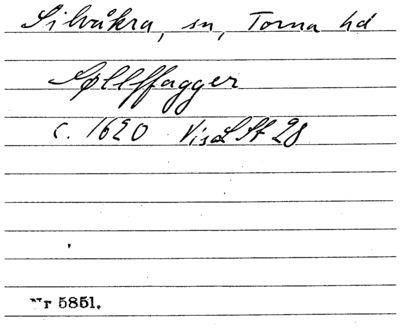 Silvåkra, sn, Torna hd
Søllffagger
c. 1620 VisL St 28
Nr 5851.